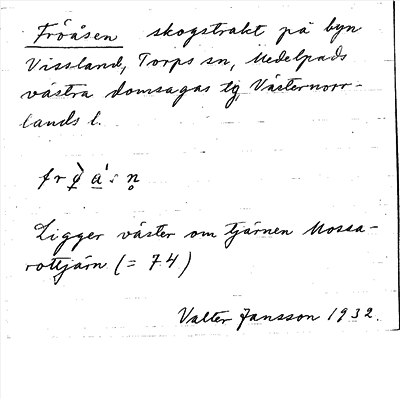 Fröåsen skogstrakt på byn
Vissland, Torps sn, Medelpads
västra domsagas tg, Västernorr-
lands l.
Ligger väster om tjärnen Mossa-
rottjärn (= 74)
Valter Jansson 1932.